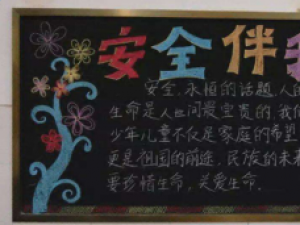 安全伴我
安全,永恒的话题,人的
生命是人世间最宝贵的,我们
少年儿童不仅是家庭的希望
更是祖国的前途,民族的未来
要珍惜生命,关爱生命.